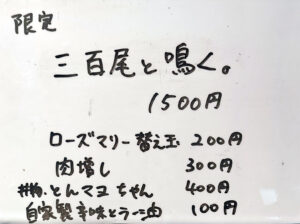 限定
三百尾と鳴く。
1500円
ローズマリー替え玉 200円
肉増し 300円
とんマヨちゃん 400円
自家製辛味とラー油 100円